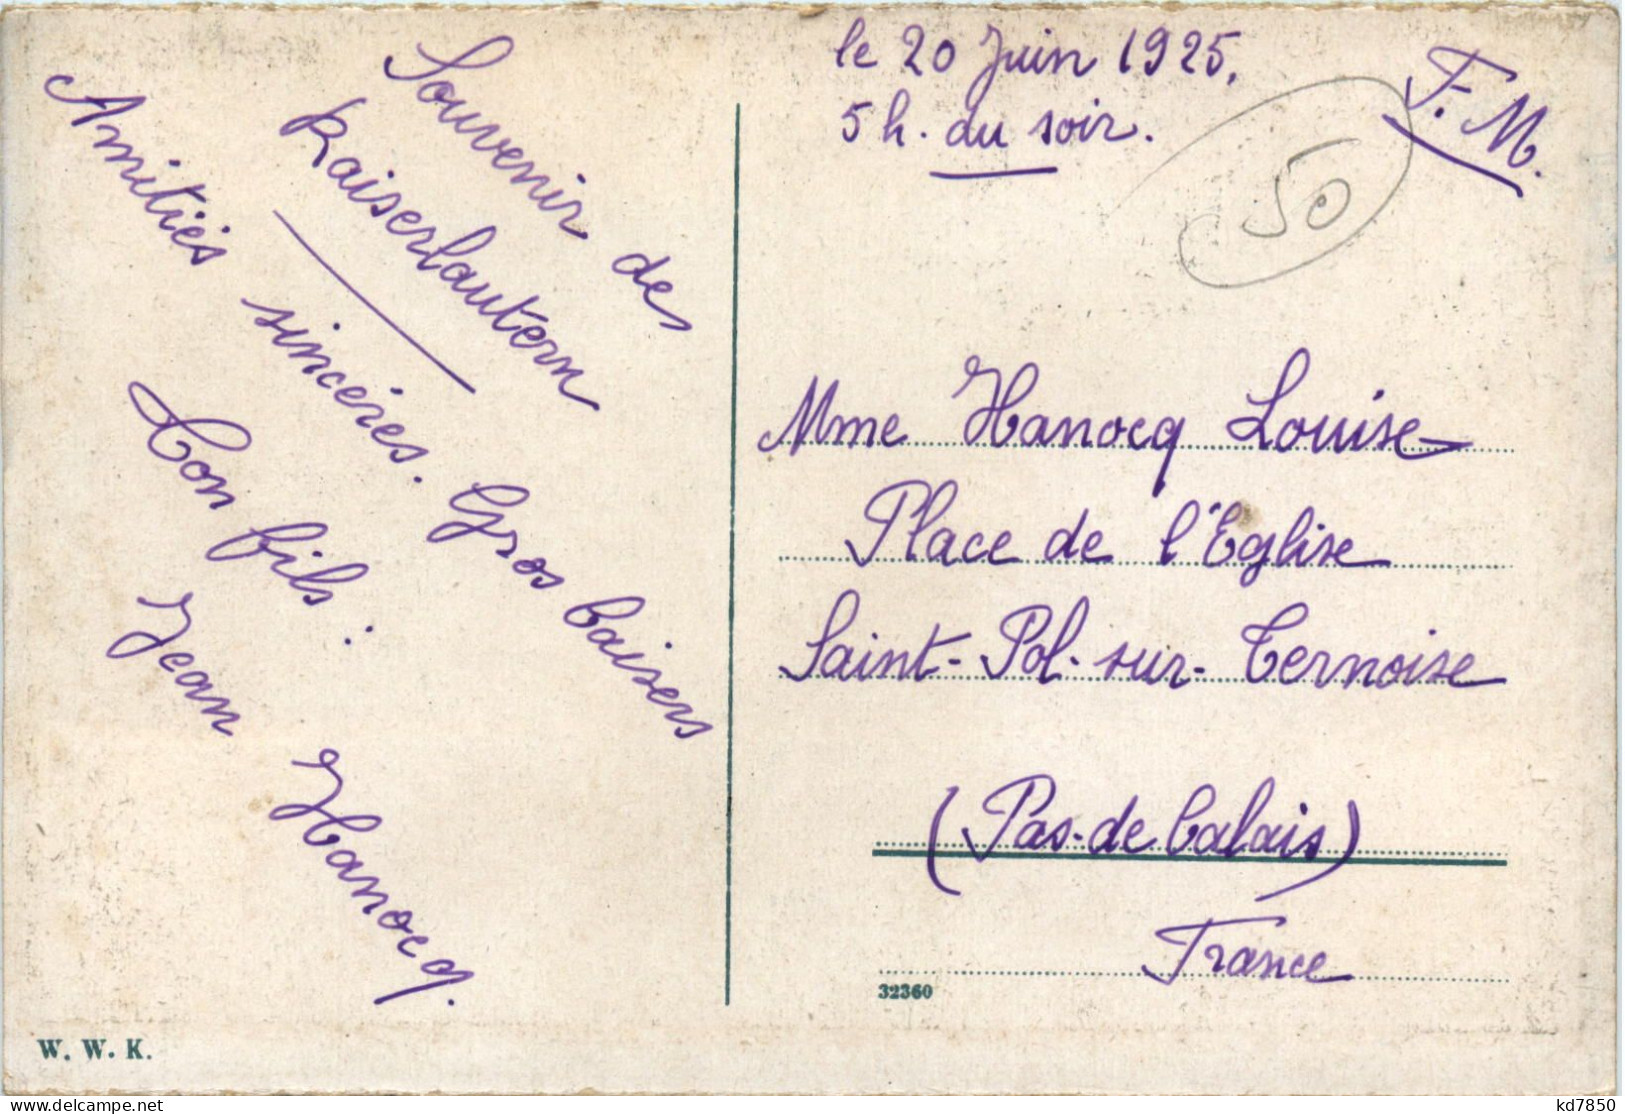 Souvenir de
Kaiserlautern
Amitiés sincéres. Gros baisers
Ton fils :
Jean Hanocq.
W. W. K.
le 20 Juin 1925.
5 h. du soir.
F. M.
50
Mme Hanocq Louise
Place de l'Eglise
Saint-Pol-sur-Ternoise
(Pas-de Calais)
France
32360
kd7850